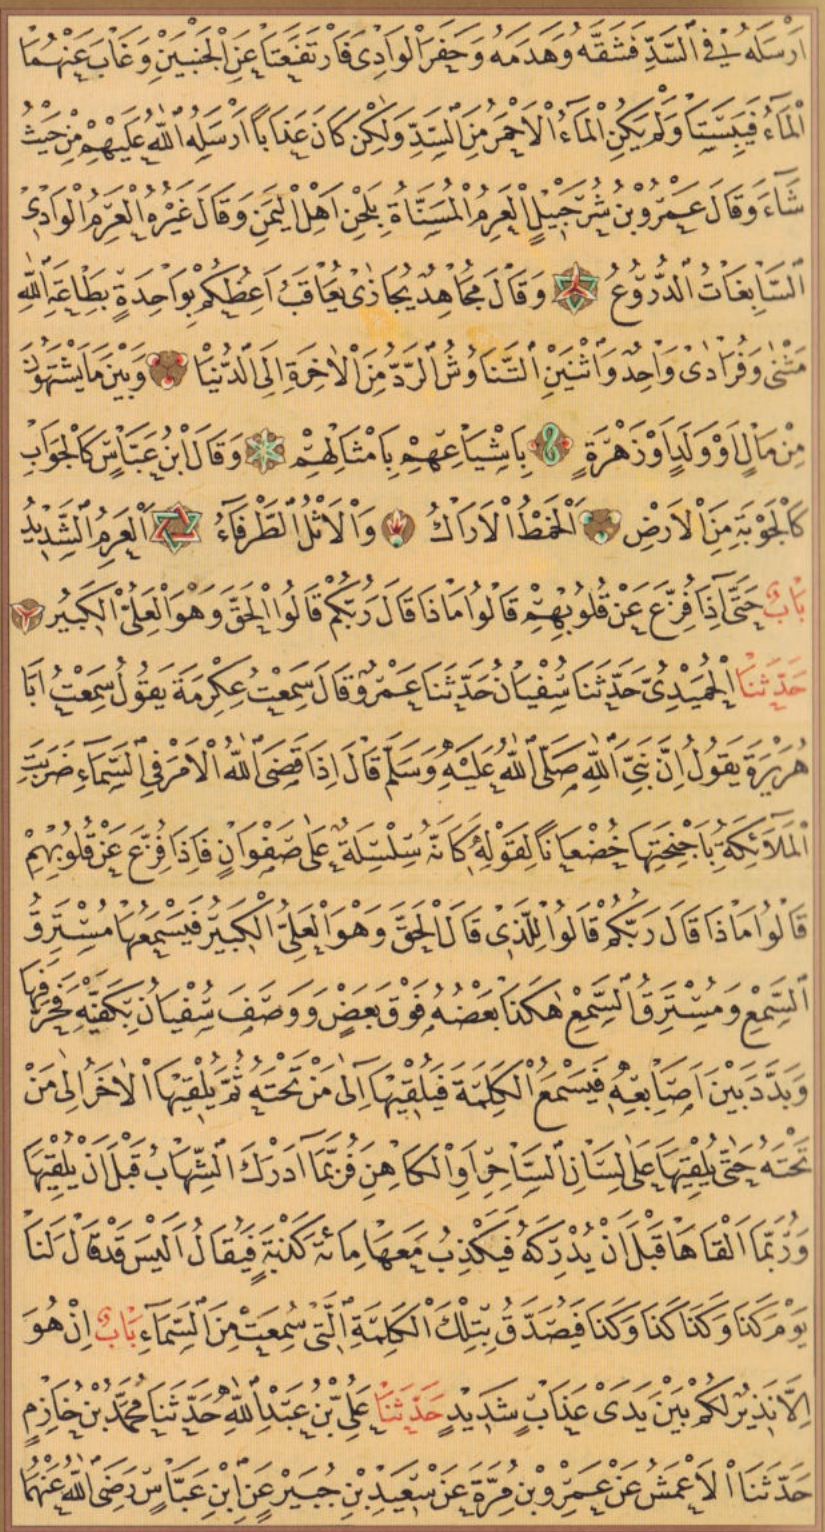 اَرْسَلَهُ فِي السَّدِّ فَشَقَّهُ وَهَدَمَهُ وَحَفَرَ الْوَادِىَ فَارْتَفَعَتَا عَنِ الْجَنْبَيْنِ وَغَابَ عَنْهُمَا
الْمَاءُ فَيَبِسَتَا وَلَمْ يَكُنِ الْمَاءُ الْاَحْمَرُ مِنَ السَّدِّ وَلٰكِنْ كَانَ عَذَابًا اَرْسَلَهُ اللّٰهُ عَلَيْهِمْ مِنْ حَيْثُ
شَاءَ وَقَالَ عَمْرُو بْنُ شُرَحْبِيلٍ الْعَرِمُ الْمُسَنَّاةُ بِلَحْنِ اَهْلِ الْيَمَنِ وَقَالَ غَيْرُهُ الْعَرِمُ الْوَادِى
السَّابِغَاتُ الدُّرُوعُ وَقَالَ مُجَاهِدٌ يُجَازٰى يُعَاقَبُ اَعِظُكُمْ بِوَاحِدَةٍ بِطَاعَةِ اللّٰهِ
مَثْنٰى وَفُرَادٰى وَاحِدٌ وَاثْنَيْنِ التَّنَاوُشُ الرَّدُّ مِنَ الْاٰخِرَةِ اِلَى الدُّنْيَا وَبَيْنَ مَا يَشْتَهُونَ
مِنْ مَالٍ اَوْ وَلَدٍ اَوْ زَهْرَةٍ بِاَشْيَاعِهِمْ بِاَمْثَالِهِمْ وَقَالَ ابْنُ عَبَّاسٍ كَالْجَوَابِ
كَالْجَوْبَةِ مِنَ الْاَرْضِ اَلْخَمْطُ الْاَرَاكُ وَالْاَثْلُ الطَّرْفَاءُ اَلْعَرِمُ الشَّدِيدُ
بَابٌ حَتّٰى اِذَا فُزِّعَ عَنْ قُلُوبِهِمْ قَالُوا مَاذَا قَالَ رَبُّكُمْ قَالُوا الْحَقَّ وَهُوَ الْعَلِىُّ الْكَبِيرُ
حَدَّثَنَا الْحُمَيْدِىُّ حَدَّثَنَا سُفْيَانُ حَدَّثَنَا عَمْرٌو قَالَ سَمِعْتُ عِكْرِمَةَ يَقُولُ سَمِعْتُ اَبَا
هُرَيْرَةَ يَقُولُ اِنَّ نَبِىَّ اللّٰهِ صَلَّى اللّٰهُ عَلَيْهِ وَسَلَّمَ قَالَ اِذَا قَضَى اللّٰهُ الْاَمْرَ فِي السَّمَاءِ ضَرَبَتِ
الْمَلَائِكَةُ بِاَجْنِحَتِهَا خُضْعَانًا لِقَوْلِهِ كَاَنَّهُ سِلْسِلَةٌ عَلٰى صَفْوَانٍ فَاِذَا فُزِّعَ عَنْ قُلُوبِهِمْ
قَالُوا مَاذَا قَالَ رَبُّكُمْ قَالُوا لِلَّذِى قَالَ الْحَقَّ وَهُوَ الْعَلِىُّ الْكَبِيرُ فَيَسْمَعُهَا مُسْتَرِقُ
السَّمْعِ وَمُسْتَرِقُ السَّمْعِ هٰكَذَا بَعْضُهُ فَوْقَ بَعْضٍ وَوَصَفَ سُفْيَانُ بِكَفِّهِ فَحَرَفَهَا
وَبَدَّدَ بَيْنَ اَصَابِعِهِ فَيَسْمَعُ الْكَلِمَةَ فَيُلْقِيهَا اِلٰى مَنْ تَحْتَهُ ثُمَّ يُلْقِيهَا الْاٰخَرُ اِلٰى مَنْ
تَحْتَهُ حَتّٰى يُلْقِيَهَا عَلٰى لِسَانِ السَّاحِرِ اَوِ الْكَاهِنِ فَرُبَّمَا اَدْرَكَ الشِّهَابُ قَبْلَ اَنْ يُلْقِيَهَا
وَرُبَّمَا اَلْقَاهَا قَبْلَ اَنْ يُدْرِكَهُ فَيَكْذِبُ مَعَهَا مِائَةَ كَذْبَةٍ فَيُقَالُ اَلَيْسَ قَدْ قَالَ لَنَا
يَوْمَ كَذَا وَكَذَا كَذَا وَكَذَا فَيُصَدَّقُ بِتِلْكَ الْكَلِمَةِ الَّتِى سُمِعَتْ مِنَ السَّمَاءِ بَابٌ اِنْ هُوَ
اِلَّا نَذِيرٌ لَكُمْ بَيْنَ يَدَىْ عَذَابٍ شَدِيدٍ حَدَّثَنَا عَلِىُّ بْنُ عَبْدِ اللّٰهِ حَدَّثَنَا مُحَمَّدُ بْنُ خَازِمٍ
حَدَّثَنَا الْاَعْمَشُ عَنْ عَمْرِو بْنِ مُرَّةَ عَنْ سَعِيدِ بْنِ جُبَيْرٍ عَنِ ابْنِ عَبَّاسٍ رَضِىَ اللّٰهُ عَنْهُمَا